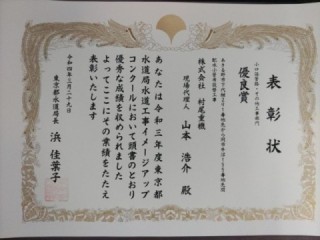 表彰状
小口径管路・その他工事部門
優良賞
株式会社 村尾重機
現場代理人 山本 浩介 殿
あなたは令和三年度東京都
水道局水道工事イメージアップ
コンクールにおいて頭書のとおり
優秀な成績を収められました
よってここにその業績をたたえ
表彰いたします
令和四年三月二十九日
東京都水道局長 浜 佳葉子